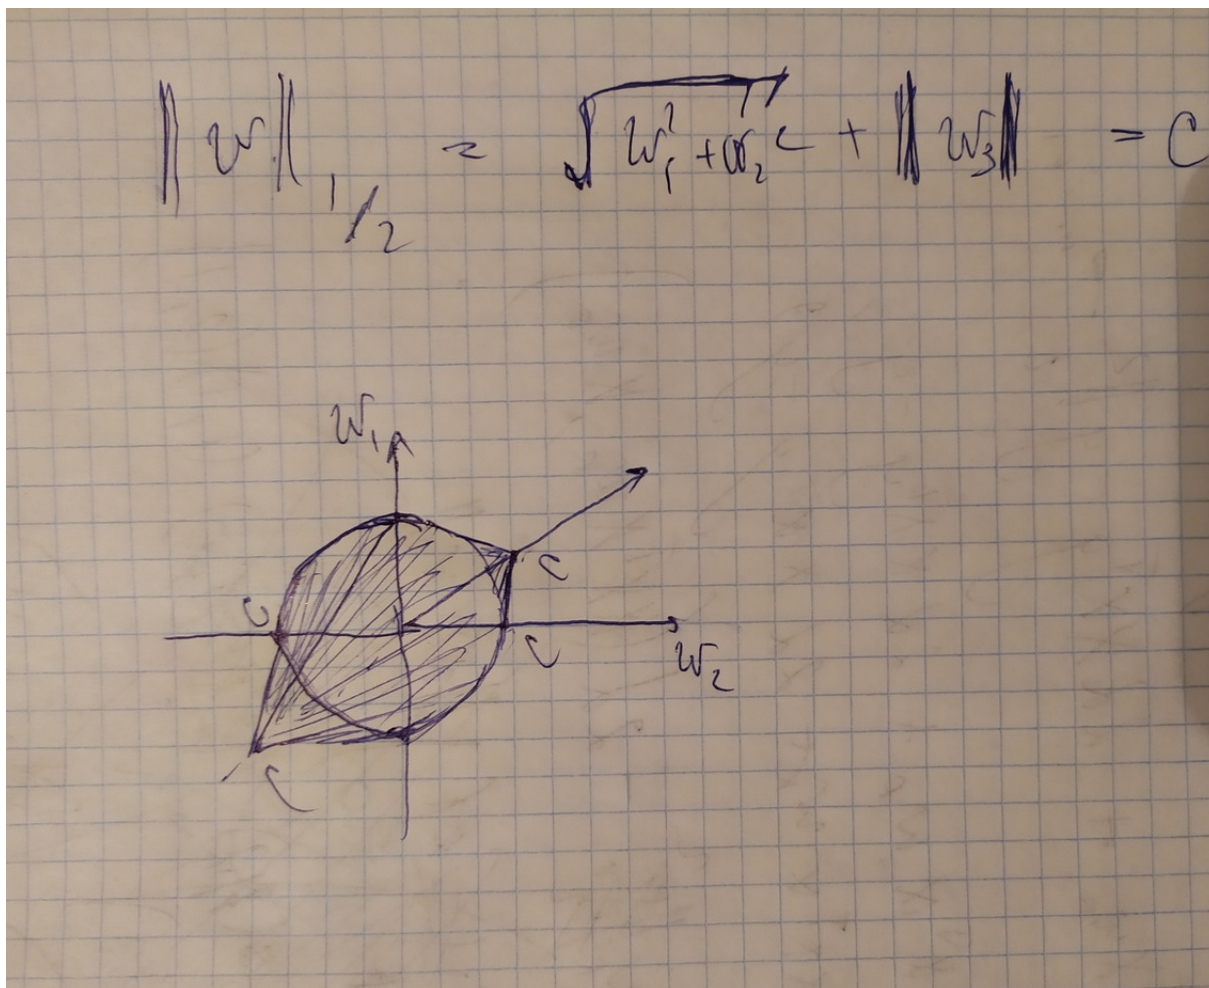 ‖w‖₁/₂ = √(w₁² + w₂²) + ‖w₃‖ = C
w₁
C
C
C
w₂
C